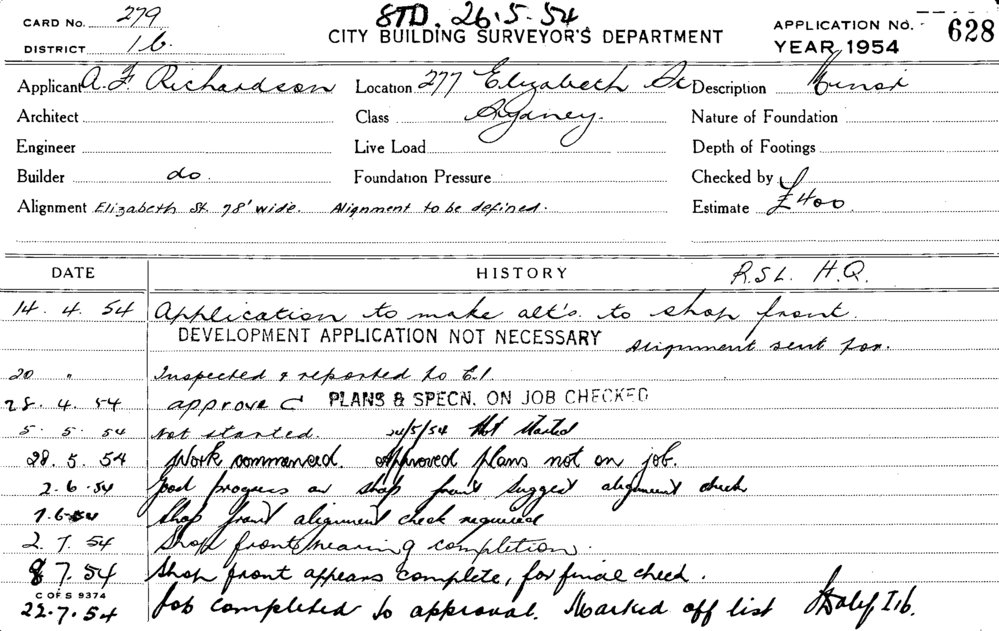 CARD NO. 279 STD. 26.5.54 APPLICATION NO. 628
DISTRICT 16. CITY BUILDING SURVEYOR'S DEPARTMENT YEAR 1954
Applicant A. F. Richardson Location 277 Elizabeth St Description Minor
Architect Class Sydney. Nature of Foundation
Engineer Live Load Depth of Footings
Builder do Foundation Pressure Checked by
Alignment Elizabeth St. 78' wide. Alignment to be defined. Estimate £400
DATE HISTORY R.S.L. H.Q.
14. 4. 54 Application to make alt's. to shop front.
DEVELOPMENT APPLICATION NOT NECESSARY Alignment sent for.
20 " Inspected & reported to E.I.
28. 4. 54 approve PLANS & SPECN. ON JOB CHECKED
5. 5. 54 Not started. 24/5/54 Not started
28. 5. 54 Work commenced. approved plans not on job.
2. 6. 54 Good progress on shop front suggest alignment check
7.6.54 Shop front alignment check required
2. 7. 54 Shop front nearing completion.
8 7. 54 Shop front appears complete, for final check.
C OF S 9374
22.7.54 Job completed to approval. Marked off list